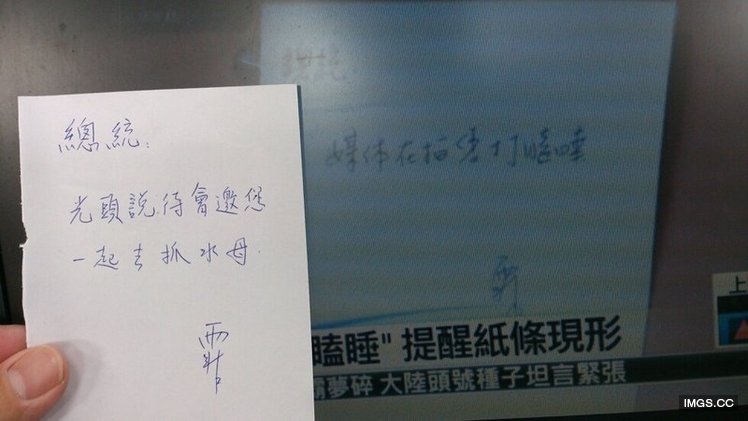 總統：
光頭說待會邀您
一起去抓水母.
媒体在拍您打瞌睡
上
瞌睡" 提醒紙條現形
霸夢碎 大陸頭號種子坦言緊張
IMGS.CC